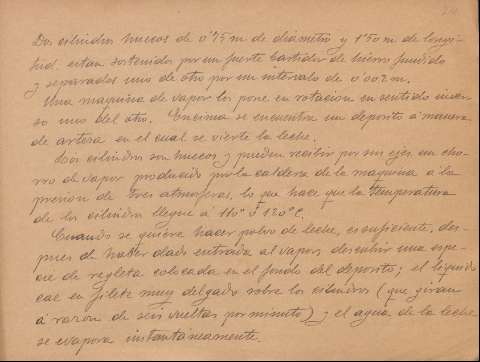 Dos cilindros huecos de 0'75 m de diámetro y 1'50 m de longi-
tud están sostenidos por un fuerte bastidor de hierro fundido
y separados uno de otro por un intervalo de 0'002 m.
Una maquina de vapor los pone en rotacion en sentido inver
so uno del otro. Encima se encuentra un deposito á manera
de artesa en el cual se vierte la leche.
Los cilindros son huecos y pueden recibir por sus ejes un cho-
rro de vapor producido por la caldera de la maquina á la
presion de tres atmosferas, lo que hace que la temperatura
de los cilindros llegue á 110° ó 120° C.
Cuando se quiere hacer polvo de leche, es suficiente, des-
pues de haber dado entrada al vapor, descubrir una espe-
cie de regleta colocada en el fondo del deposito; el liquido
cae en filete muy delgado sobre los cilindros (que giran
á razon de seis vueltas por minuto) y el agua de la leche
se evapora instantáneamente.